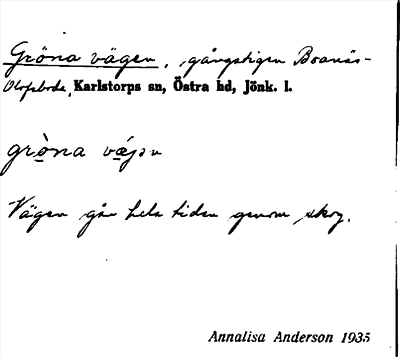 Gröna vägen, gångstigen Boanäs-
Olofsboda, Karlstorps sn, Östra hd, Jönk. l.
grò̱na vǽjən
Vägen går hela tiden genom skog.
Annalisa Anderson 1935